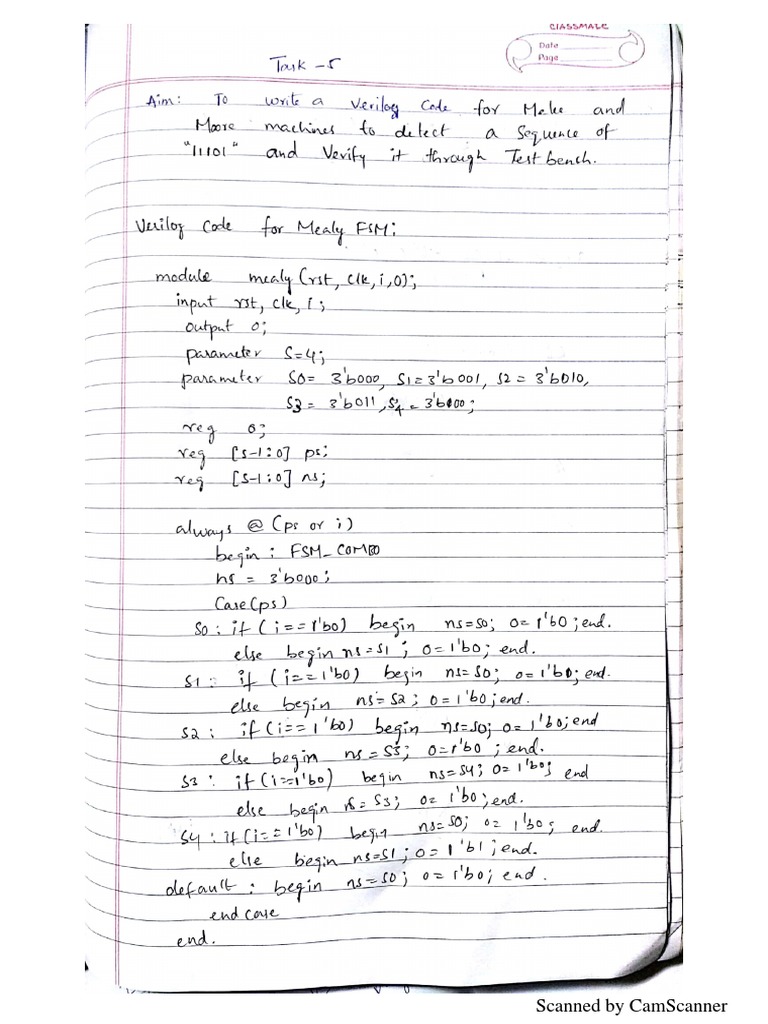 CLASSMATE
Date
Page
Task - 5
Aim: To write a Verilog Code for Melee and
Moore machines to detect a sequence of
"11101" and Verify it through Test bench.
Verilog Code for Mealy FSM:
module mealy (rst, clk, i, o);
input rst, clk, i;
output o;
parameter S=4;
parameter S0= 3'b000, S1=3'b001, S2 = 3'b010,
S3 = 3'b011, S4 = 3'b100;
reg o;
reg [S-1:0] ps;
reg [S-1:0] ns;
always @ (ps or i)
begin: FSM_COMBO
ns = 3'b000;
Case(ps)
S0: if (i==1'b0) begin ns=S0; o=1'b0; end.
else begin ns=S1; o=1'b0; end.
S1: if (i==1'b0) begin ns=S0; o=1'b0; end.
else begin ns=S2; o=1'b0; end.
S2: if (i==1'b0) begin ns=S0; o=1'b0; end
else begin ns=S3; o=1'b0; end.
S3: if (i==1'b0) begin ns=S4; o=1'b0; end
else begin ns=S3; o=1'b0; end.
S4: if (i==1'b0) begin ns=S0; o=1'b0; end.
else begin ns=S1; o=1'b1; end.
default: begin ns=S0; o=1'b0; end.
end case
end.
Scanned by CamScanner